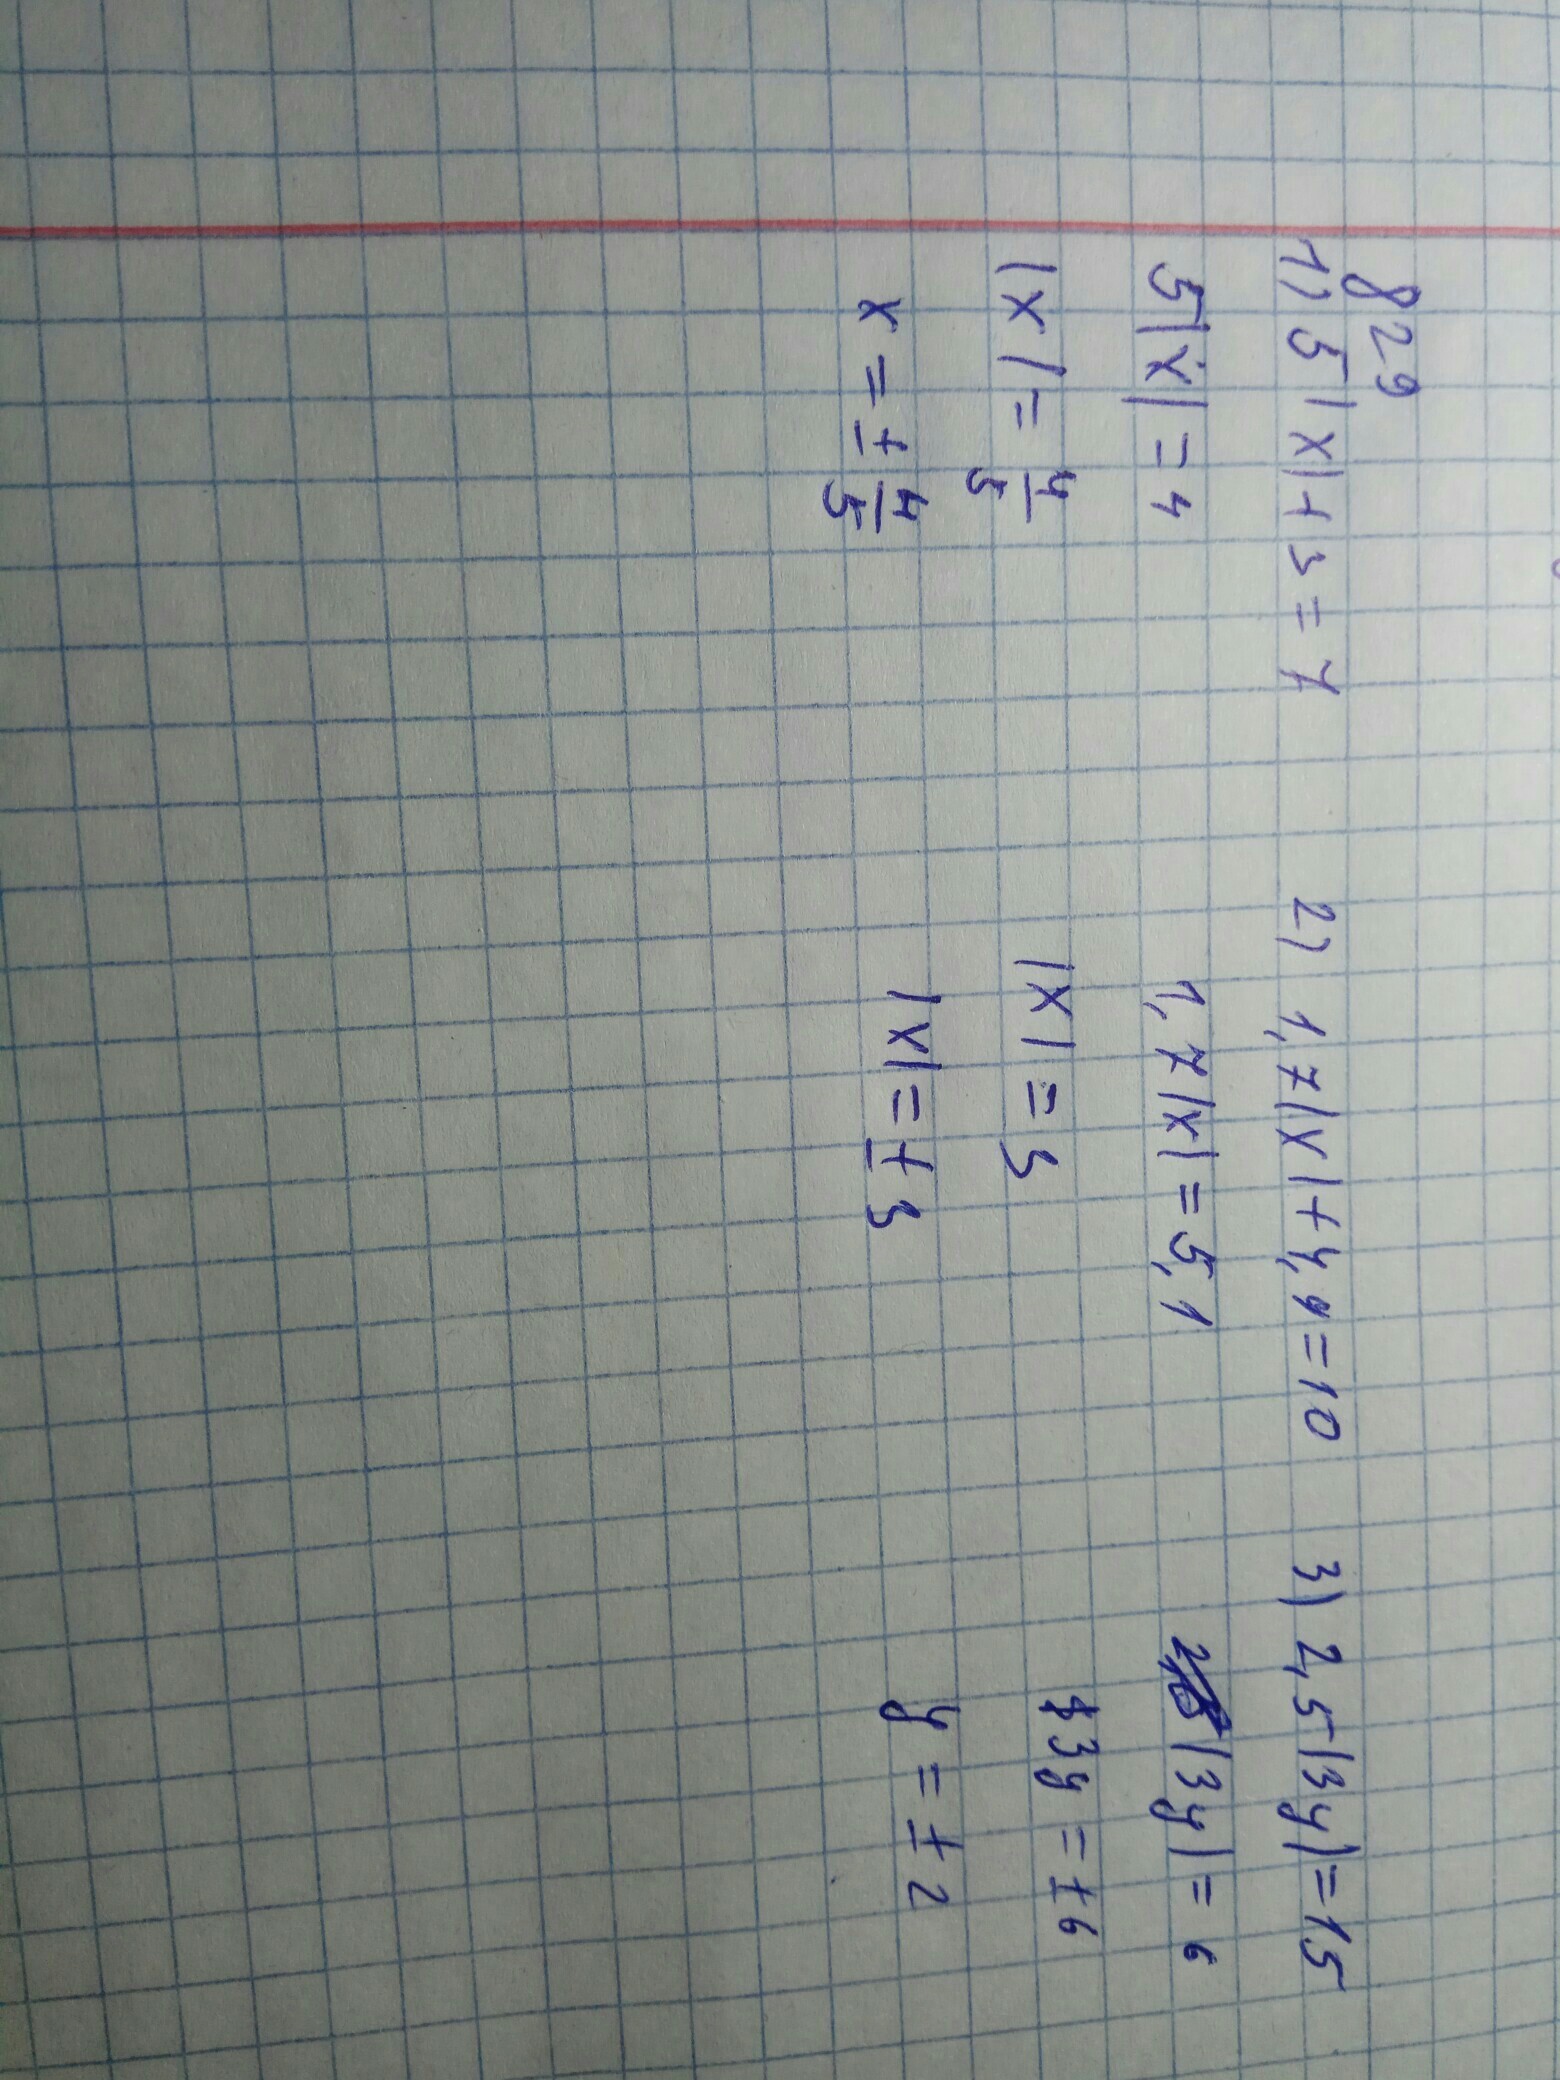 829
1) 5|x|+3=7
5|x|=4
|x|=4/5
x=±4/5
2) 1,7|x|+4,9=10
1,7|x|=5,1
|x|=3
|x|=±3
3) 2,5|3y|=15
|3y|=6
3y=±6
y=±2